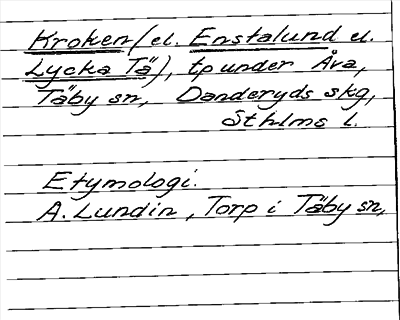 Kroken (el. Enstalund el.
Lycka Tä), tp under Åva,
Täby sn, Danderyds skg,
Sthlms l.
Etymologi.
A. Lundin, Torp i Täby sn,